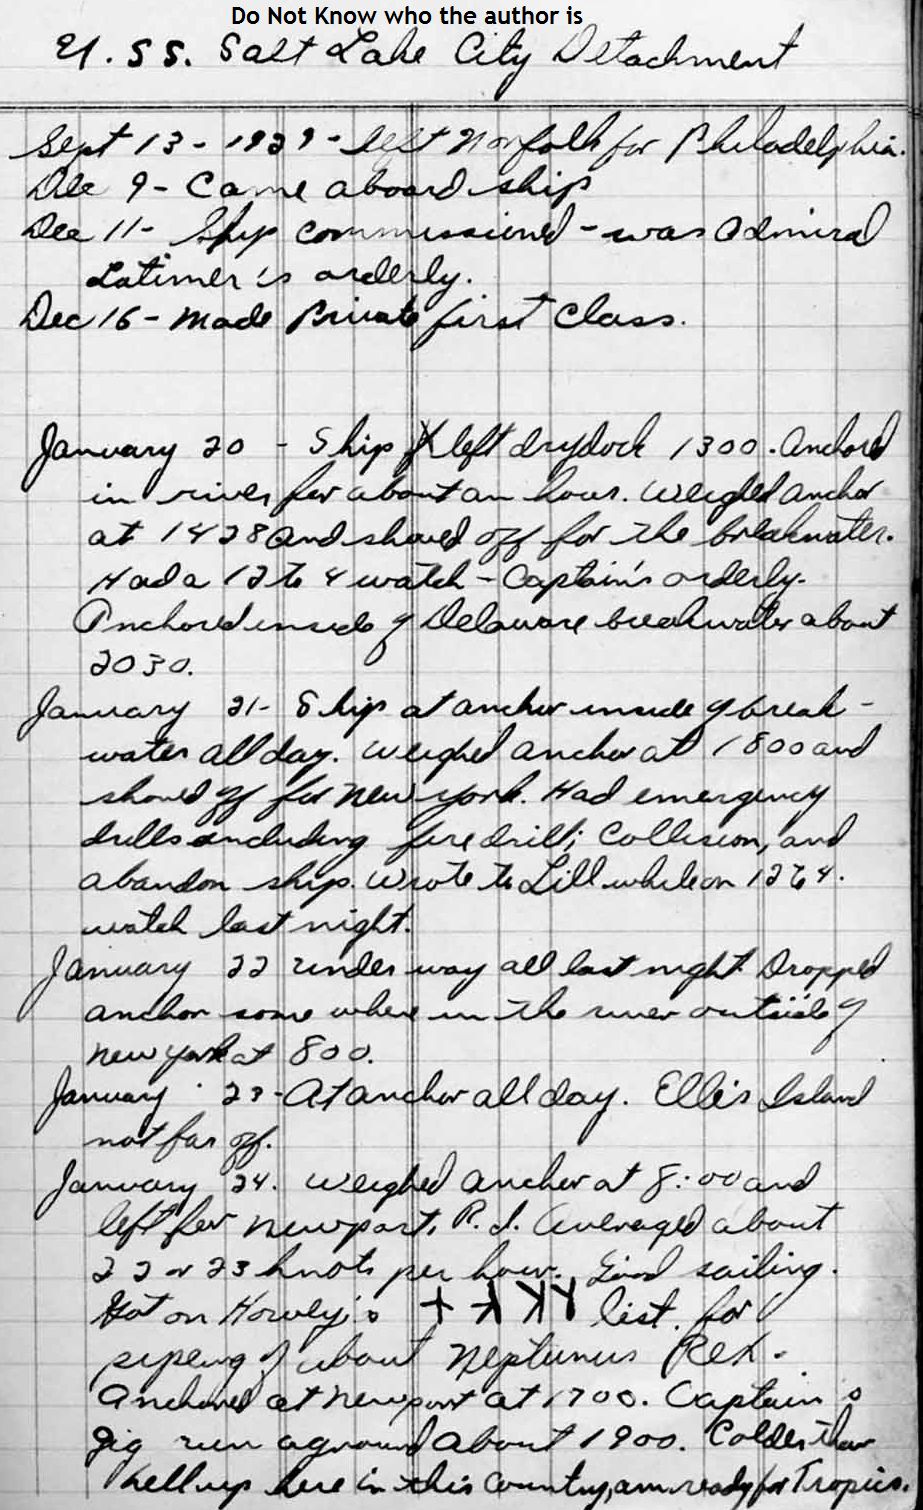 Do Not Know who the author is
U.S.S. Salt Lake City Detachment
Sept 13 - 1929 - left Norfolk for Philadelphia.
Dec 9 - Came aboard ship
Dec 11 - Ship commissioned - was Admiral
Latimer's orderly.
Dec 16 - Made Private first Class.
January 20 - Ship left drydock 1300. Anchored
in river for about an hour. Weighed anchor
at 1428 and shoved off for the breakwater.
Had a 12 to 4 watch - Captain's orderly.
Anchored inside of Delaware breakwater about
2030.
January 21 - Ship at anchor inside of break-
water all day. Weighed anchor at 1800 and
shoved off for New York. Had emergency
drills including fire drill; Collision, and
abandon ship. Wrote to Lill while on 12 to 4.
watch last night.
January 22 under way all last night. Dropped
anchor some where in the river outside of
New York at 800.
January 23 - At anchor all day. Ellis Island
not far off.
January 24. Weighed anchor at 8:00 and
left for Newport, R.I. Averaged about
22 or 23 knots per hour. Good sailing.
Got on list for
piping of about Neptunus Rex.
Anchored at Newport at 1700. Captain's
gig run aground about 1900. Colder than
hell up here in this country, am ready for Tropics.